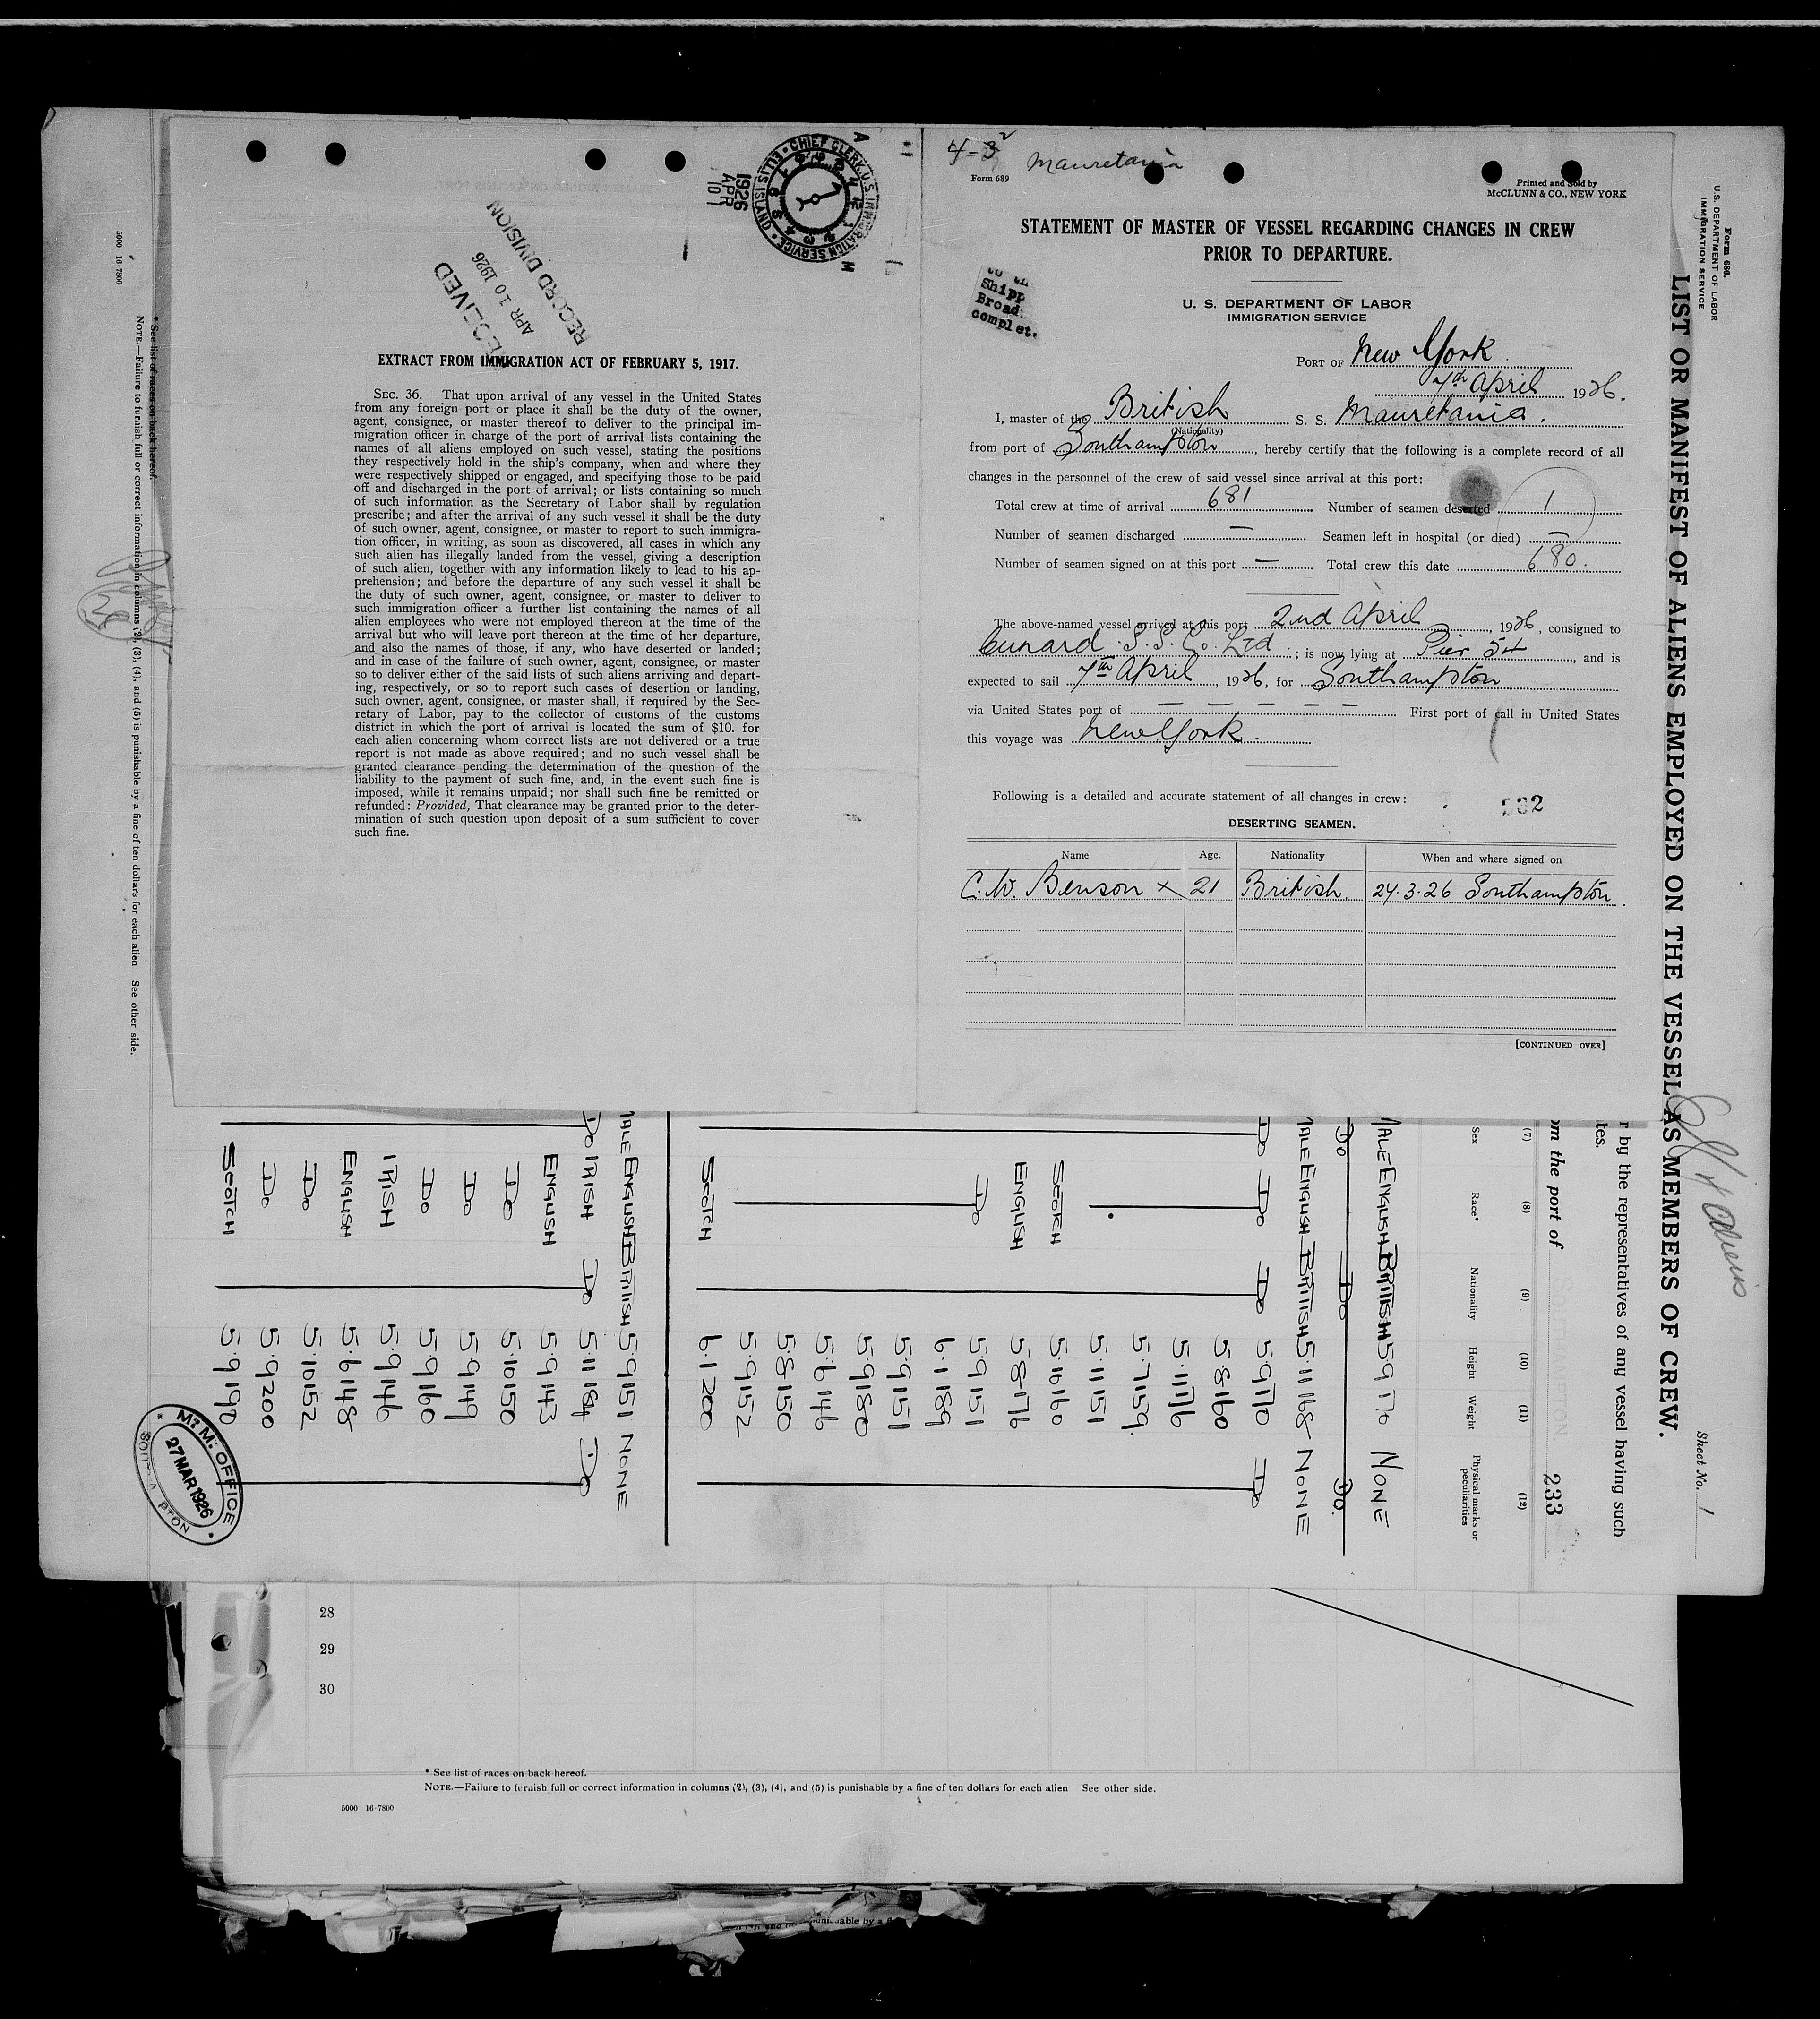 CHIEF CLERK, U.S. IMMIGRATION SERVICE • ELLIS ISLAND
1926
APR
10
RECEIVED
APR 10 1926
RECORD DIVISION
EXTRACT FROM IMMIGRATION ACT OF FEBRUARY 5, 1917.
SEC. 36. That upon arrival of any vessel in the United States
from any foreign port or place it shall be the duty of the owner,
agent, consignee, or master thereof to deliver to the principal im-
migration officer in charge of the port of arrival lists containing the
names of all aliens employed on such vessel, stating the positions
they respectively hold in the ship's company, when and where they
were respectively shipped or engaged, and specifying those to be paid
off and discharged in the port of arrival; or lists containing so much
of such information as the Secretary of Labor shall by regulation
prescribe; and after the arrival of any such vessel it shall be the duty
of such owner, agent, consignee, or master to report to such immigra-
tion officer, in writing, as soon as discovered, all cases in which any
such alien has illegally landed from the vessel, giving a description
of such alien, together with any information likely to lead to his ap-
prehension; and before the departure of any such vessel it shall be
the duty of such owner, agent, consignee, or master to deliver to
such immigration officer a further list containing the names of all
alien employees who were not employed thereon at the time of the
arrival but who will leave port thereon at the time of her departure,
and also the names of those, if any, who have deserted or landed;
and in case of the failure of such owner, agent, consignee, or master
so to deliver either of the said lists of such aliens arriving and depart-
ing, respectively, or so to report such cases of desertion or landing,
such owner, agent, consignee, or master shall, if required by the Sec-
retary of Labor, pay to the collector of customs of the customs
district in which the port of arrival is located the sum of $10. for
each alien concerning whom correct lists are not delivered or a true
report is not made as above required; and no such vessel shall be
granted clearance pending the determination of the question of the
liability to the payment of such fine, and, in the event such fine is
imposed, while it remains unpaid; nor shall such fine be remitted or
refunded: Provided, That clearance may be granted prior to the deter-
mination of such question upon deposit of a sum sufficient to cover
such fine.
4-3 Mauretania
Form 689
Printed and Sold by
McCLUNN & CO., NEW YORK
STATEMENT OF MASTER OF VESSEL REGARDING CHANGES IN CREW
PRIOR TO DEPARTURE.
Shipp
Broad
complet.
U. S. DEPARTMENT OF LABOR
IMMIGRATION SERVICE
PORT OF New York
7th April 1926.
I, master of the British S. S. Mauretania.
(Nationality)
from port of Southampton, hereby certify that the following is a complete record of all
changes in the personnel of the crew of said vessel since arrival at this port:
Total crew at time of arrival 681 Number of seamen deserted 1
Number of seamen discharged — Seamen left in hospital (or died) —
Number of seamen signed on at this port — Total crew this date 680.
The above-named vessel arrived at this port 2nd April, 1926, consigned to
Cunard S.S. Co. Ltd; is now lying at Pier 54, and is
expected to sail 7th April, 1926, for Southampton
via United States port of — — — — — First port of call in United States
this voyage was New York.
Following is a detailed and accurate statement of all changes in crew:
232
DESERTING SEAMEN.
Name Age. Nationality When and where signed on
C.W. Benson x 21 British 24.3.26 Southampton.
[CONTINUED OVER]
Form 680.
U. S. DEPARTMENT OF LABOR
IMMIGRATION SERVICE
LIST OR MANIFEST OF ALIENS EMPLOYED ON THE VESSEL AS MEMBERS OF CREW.
Sheet No. 1
r by the representatives of any vessel having such
tes.
om the port of SOUTHAMPTON 233
(7) (8) (9) (10) (11) (12)
Sex Race* Nationality Height Weight Physical marks or peculiarities
MALE ENGLISH BRITISH 5.9 176 NONE
DO DO DO.
MALE ENGLISH BRITISH 5.11 168 NONE
DO DO DO 5.9 170 DO
5.8 160
5.11 176
5.7 159.
5.11 151
SCOTCH 5.10 160
ENGLISH 5.8 176
DO 5.9 151
6.1 189
5.9 151
5.9 180
5.6 146
5.8 150
5.9 152
SCOTCH 6.1 200
MALE ENGLISH BRITISH 5.9 151 NONE
DO IRISH DO 5.11 184 DO
ENGLISH 5.9 143
DO 5.10 150
DO 5.9 149
DO 5.9 160
IRISH 5.9 146
ENGLISH 5.6 148
DO 5.10 152
DO 5.9 200
SCOTCH 5.9 190
M.M. OFFICE
27 MAR 1926
* See list of races on back hereof.
NOTE.—Failure to furnish full or correct information in columns (2), (3), (4), and (5) is punishable by a fine of ten dollars for each alien See other side.
5000 16-7800
28
29
30
* See list of races on back hereof.
NOTE.—Failure to furnish full or correct information in columns (2), (3), (4), and (5) is punishable by a fine of ten dollars for each alien See other side.
5000 16-7800